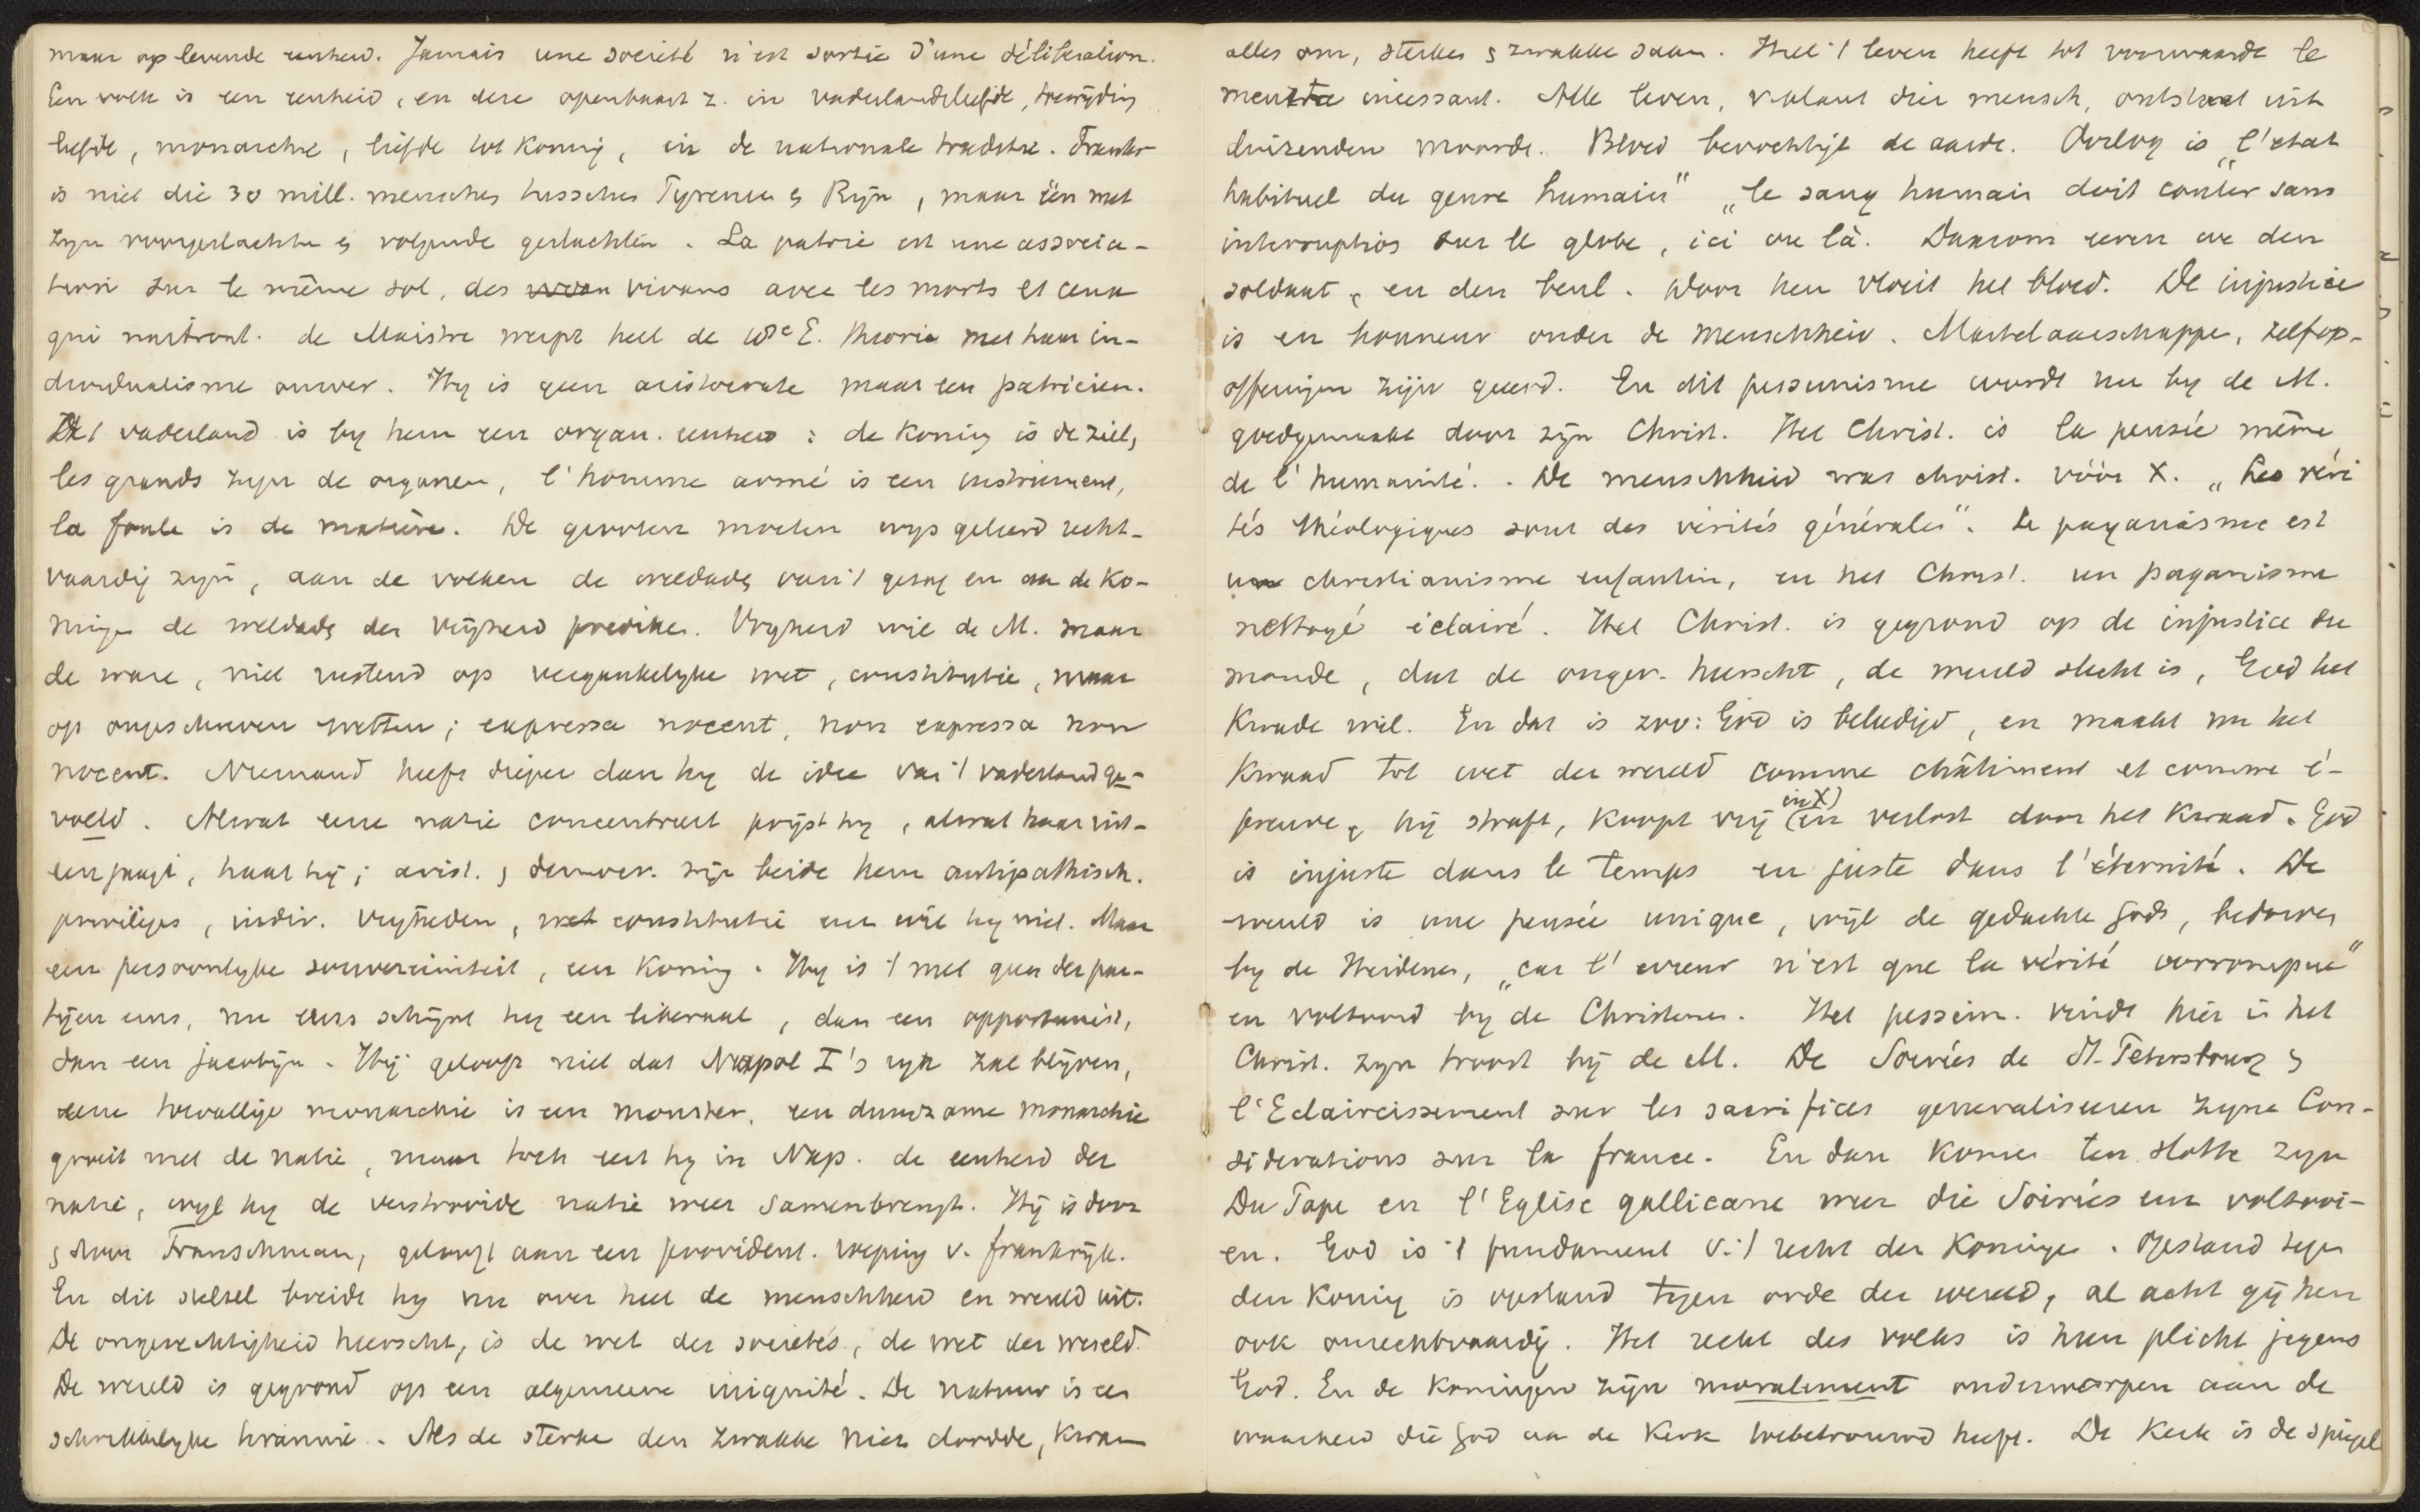 maar op levende eenheid. Jamais une société n'est sortie d'une délibération.
Een volk is een eenheid, en deze openbaart z. in vaderlandsliefde, toewijding
liefde, monarchie, liefde tot Koning, in de nationale traditie. Frankr
is niet die 30 mill. menschen tusschen Pyrenen & Rijn, maar één met
zyn voorgeslachten & volgende geslachten. La patrie est une associa-
tion sur le même sol, des vivans avec les morts et ceux
qui naîtront. de Maistre werpt heel de 18e E. theorie met haar in-
dividualisme omver. Hy is geen aristocrate maar een patricien.
Het vaderland is by hem een organ. eenheid: de Koning is de ziel,
les grands zyn de organen, l'homme armé is een instrument,
la foule is de matière. De grooten moeten wys geleerd recht-
vaardig zyn, aan de volken de weldade van 't gezag en aan de Ko-
ningen de weldade der vrijheid prediken. Vryheid wil de M. maar
de ware, niet rustend op vergankelyke wet, constitutie, maar
op ongeschreven wetten; expressa nocent, non expressa non
nocent. Niemand heeft dieper dan hy de idee van 't vaderland ge-
voeld. Alwat eene natie concentreert prijst hy, alwat haar uit-
een jaagt, haat hij; arist. & democr. zijn beide hem antipathisch.
privileges, indiv. vrijheden, constitutie enz wil hy niet. Maar
een persoonlyke souvereiniteit, een Koning. Hy is 't met geen der par-
tijen eens, nu eens schijnt hy een liberaal, dan een opportunist,
dan een jacobijn. Hij gelooft niet dat Napol I's ryk zal blijven,
eene toevallige monarchie is een monster, een duurzame monarchie
groeit met de natie, maar toch eert hy in Nap. de eenheid der
natie, wijl hy de verstrooide natie weer samenbrengt. Hij is door
& door Franschman, gelooft aan een provident. roeping v. frankrijk.
En dit stelsel breidt hy nu over heel de menschheid en wereld uit.
De ongerechtigheid heerscht, is de wet der societés, de wet der wereld.
De wereld is gegrond op een algemeene iniquité. De natuur is een
schrikkelyke tirannie. Als de sterke den zwakke niet doodde, kwam
alles om, sterken & zwakke saam. Heel 't leven heeft tot voorwaarde le
incessant. Alle leven, v. plant dier mensch, ontstaat uit
duizenden moorde. Bloed bevochtigt de aarde. Oorlog is „l'état
habituel du genre humain" „le sang humain doit couler sans
interruption sur le globe, ici ou là. Daarom eeren we den
soldaat, en den beul. Door hen vloeit het bloed. De injustice
is en honneur onder de menschheid. Martelaarschappe, zelfop-
offeringen zijn geëerd. En dit pessimisme wordt nu by de M.
goedgemaakt door zijn Christ. Het Christ. is la pensée même
de l'humanité. De menschheid was christ. vóór X. „Les véri
tés théologiques sont des vérités générales". Le paganisme est
un christianisme enfantin, en het Christ. un paganisme
nettoyé éclairé. Het Christ. is gegrond op de injustice du
monde, dat de onger. heerscht, de wereld slecht is, God het
Kwade wil. En dat is zoo: God is beledigd, en maakt nu het
Kwaad tot wet der wereld comme châtiment et comme é-
preuve, hij straft, koopt vrij (in X) en verlost door het Kwaad. God
is injuste dans le temps en juste dans l'éternité. De
wereld is une pensée unique, wijl de gedachte Gods, bedorven
by de Heidenen, „car l'erreur n'est que la vérité corrompue"
en voltooid by de Christenen. Het pessim. vindt hier in het
Christ. zyn troost bij de M. De Soirées de St. Petersbourg &
l'Eclaircissement sur les sacrifices generaliseeren zyne Con-
siderations sur la france. En dan komen ten slotte zyn
Du Pape en l'Eglise gallicane weer die Soirées en voltooi-
en. God is 't fundament v. 't recht der Koningen. Opstand tegen
den Koning is opstand tegen orde der wereld, al acht gij hen
ook onrechtvaardig. Het recht des volks is hun plicht jegens
God. En de Koningen zijn moralement onderworpen aan de
waarheid die God aan de Kerk toebetrouwd heeft. De Kerk is de spiegel